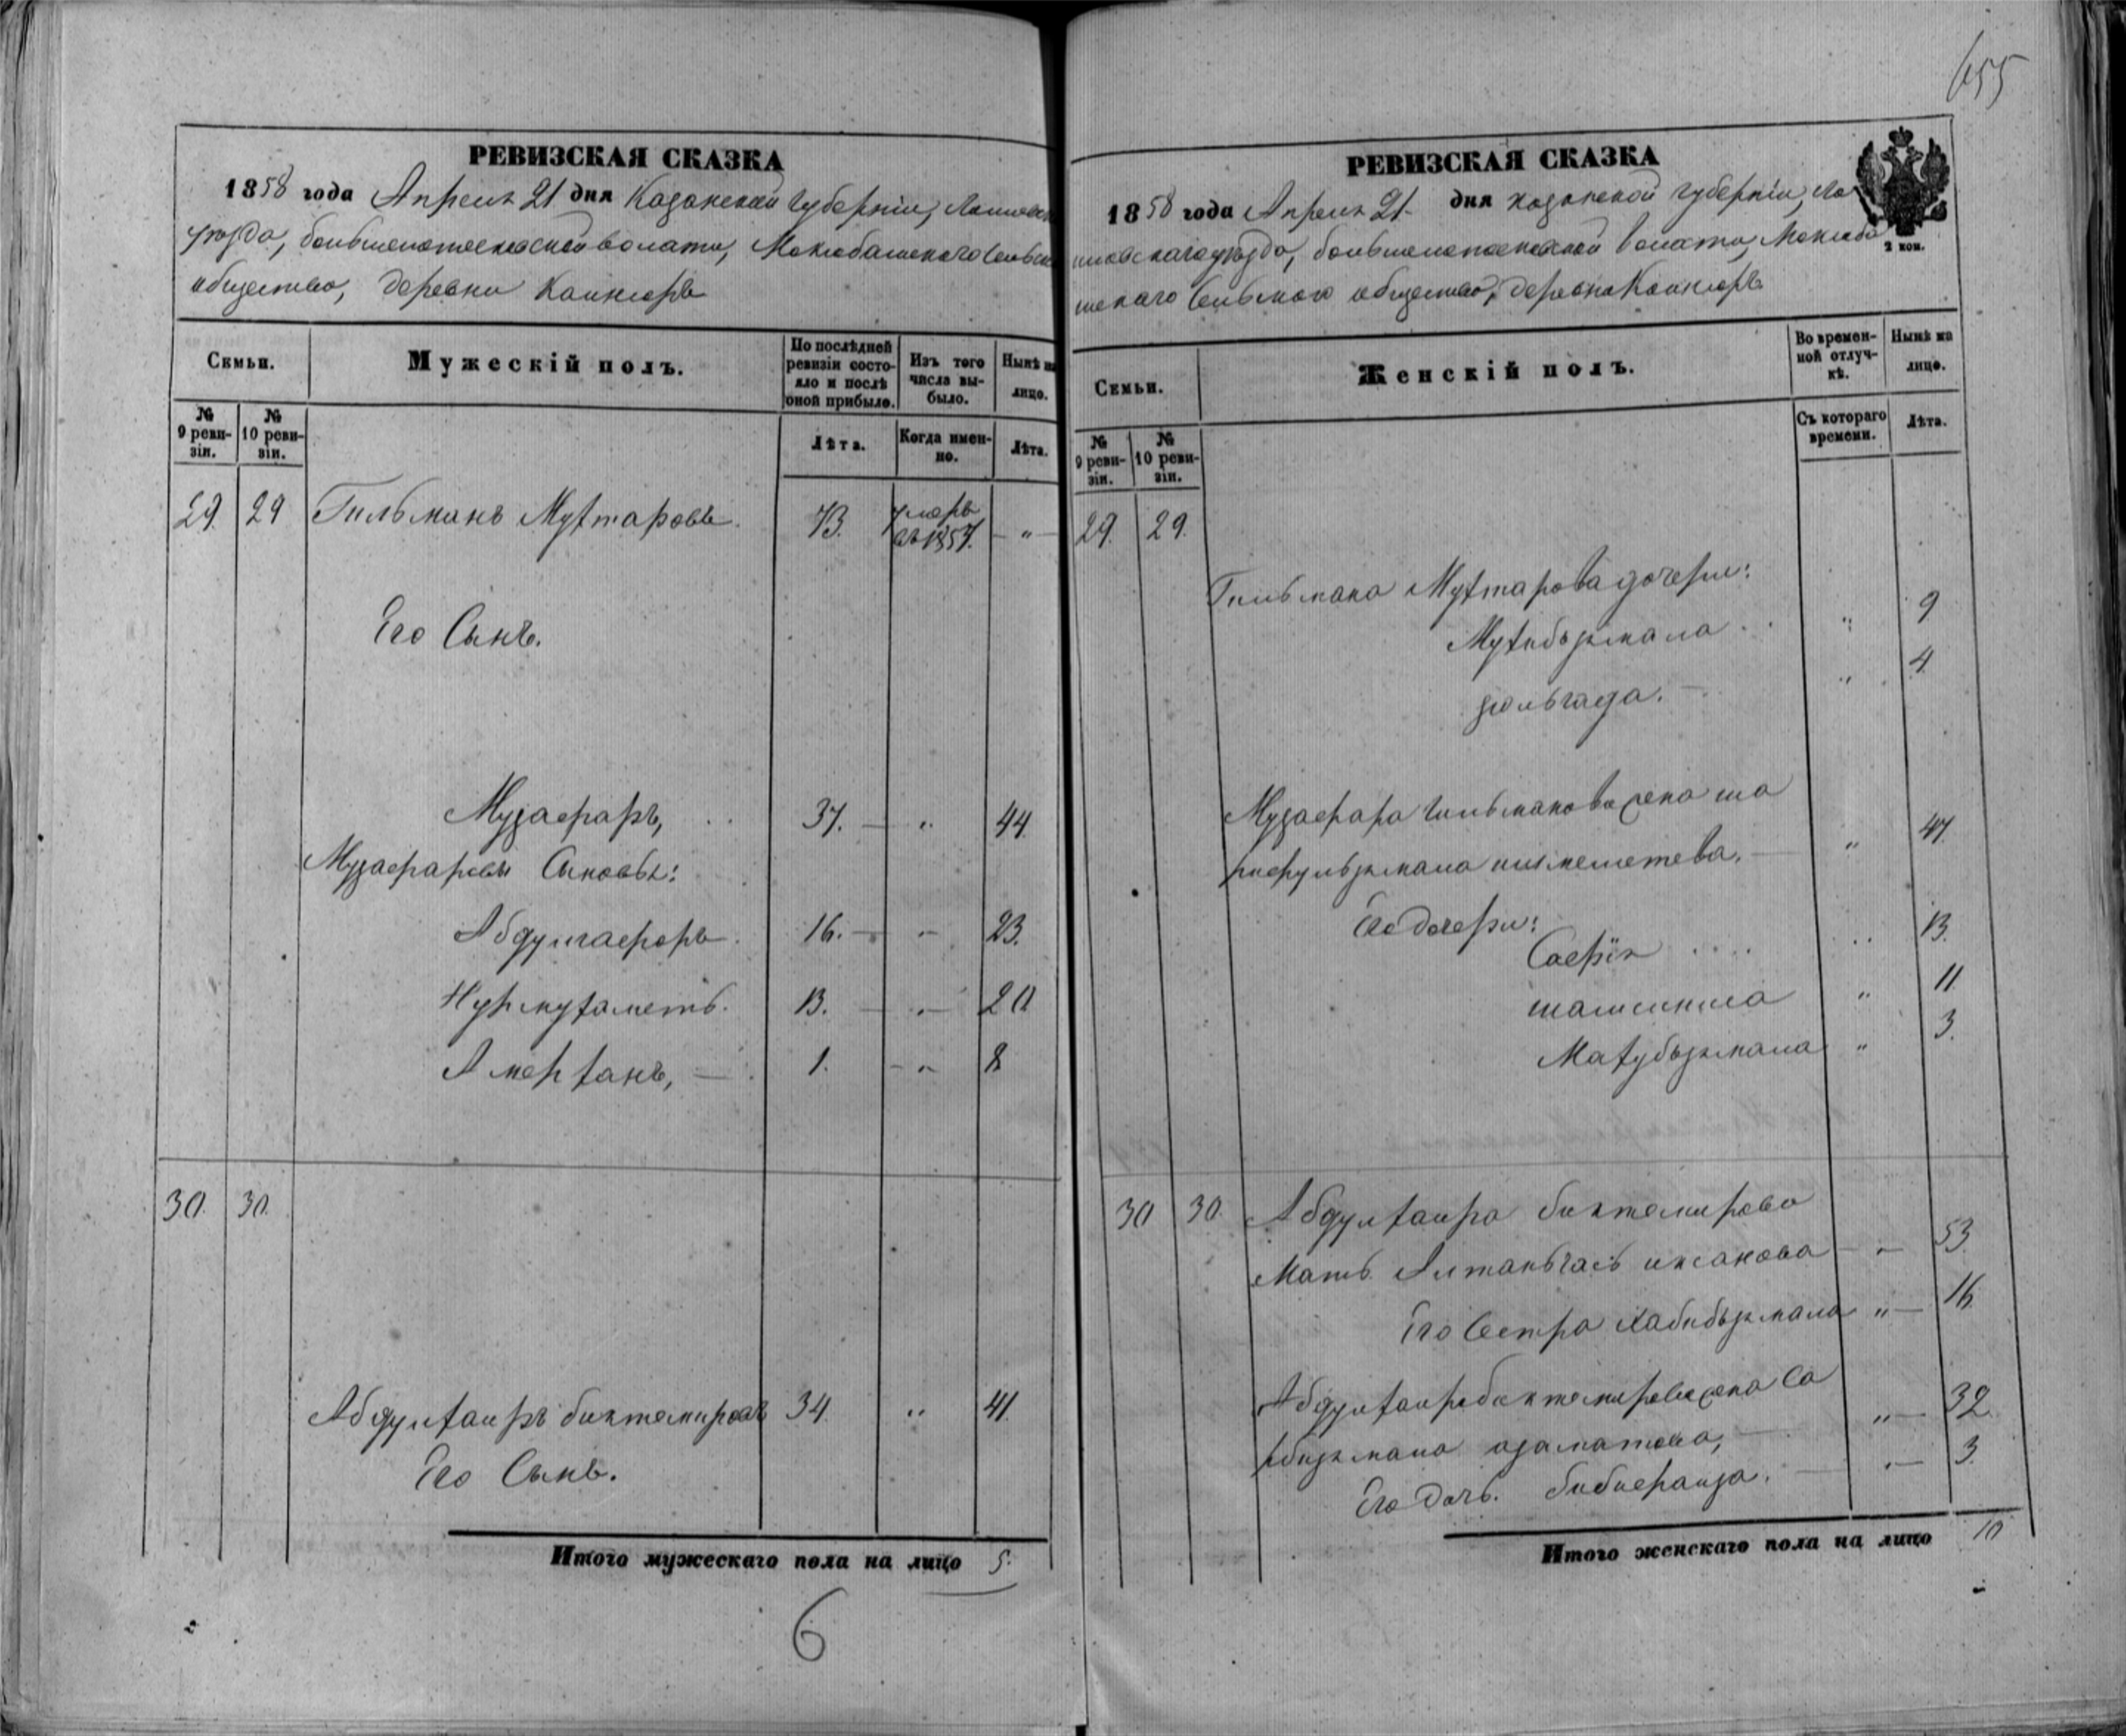 655
РЕВИЗСКАЯ СКАЗКА
1858 года Апреля 21 дня Казанской губернiи, Лаишевск
уезда, большеметескинской волости, Маклюбашскаго Сельск
общества, деревни
Семьи.
Мужескiй полъ.
По послѣдней ревизiи состояло и послѣ оной прибыло.
Изъ того числа выбыло.
Нынѣ на лицо.
№ 9 ревизiи.
№ 10 ревизiи.
Лѣта.
Когда именно.
Лѣта.
29. 29 Гильманъ Мухтаровъ. 73. умеръ въ 1857. — „ —
Его Сынъ.
Музафаръ, 37. — „ 44
Музафаровы Сыновья:
Абдулгафаръ. 16. — „ — 23.
Нурмухаметъ. 13. — „ — 20
Амерханъ, — 1. — „ — 8
30. 30.
Абдулхаиръ биктемировъ 34. „ 41.
Его Сынъ.
Итого мужескаго пола на лицо 5.
6
РЕВИЗСКАЯ СКАЗКА
1858 года Апреля 21. дня казанской губернiи, Ла
ишевскаго уезда, большеметескинской волости, Маклюба
шскаго Сельскаго общества, деревни
2 коп.
Семьи.
Женскiй полъ.
Во временной отлучкѣ.
Нынѣ на лицо.
№ 9 ревизiи.
№ 10 ревизiи.
Съ котораго времени.
Лѣта.
29. 29.
Гильмана Мухтарова дочери:
Мухибзямала „ 9
зюльхада. — „ 4
Музафара гильманова жена ша
рифульзямала — „ 47.
Его дочери:
Сафiя 13.
шамсиниса „ 11
Махубзямала „ 3.
30 30. Абдулхаира биктемирова
Мать Алтынчачь исхакова — „ — 53.
Его Сестра Хабибзямала „ — 16.
Абдулхаира биктемирова жена Са
хибзямала азаматова, — „ — 32.
Его дочь. бибифаиза. — „ — 3.
Итого женскаго пола на лицо 10